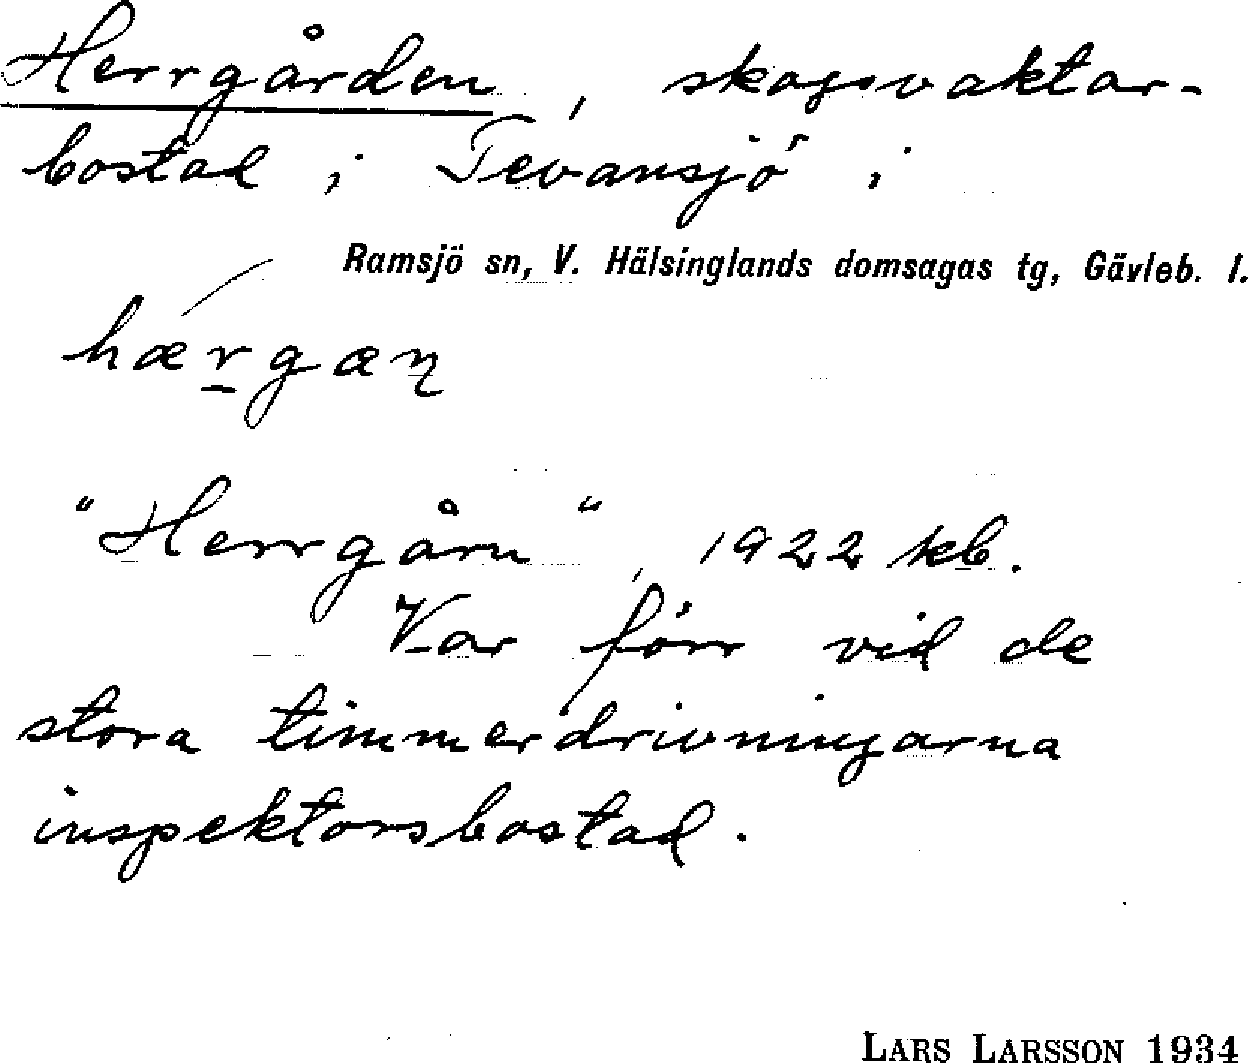 Herrgården, skogsvaktar-
bostad i Tevansjö i
Ramsjö sn, V. Hälsinglands domsagas tg, Gävleb. l.
hærgæɳ
"Herrgårn", 1922 kb.
Var förr vid de
stora timmerdrivningarna
inspektorsbostad.
LARS LARSSON 1934